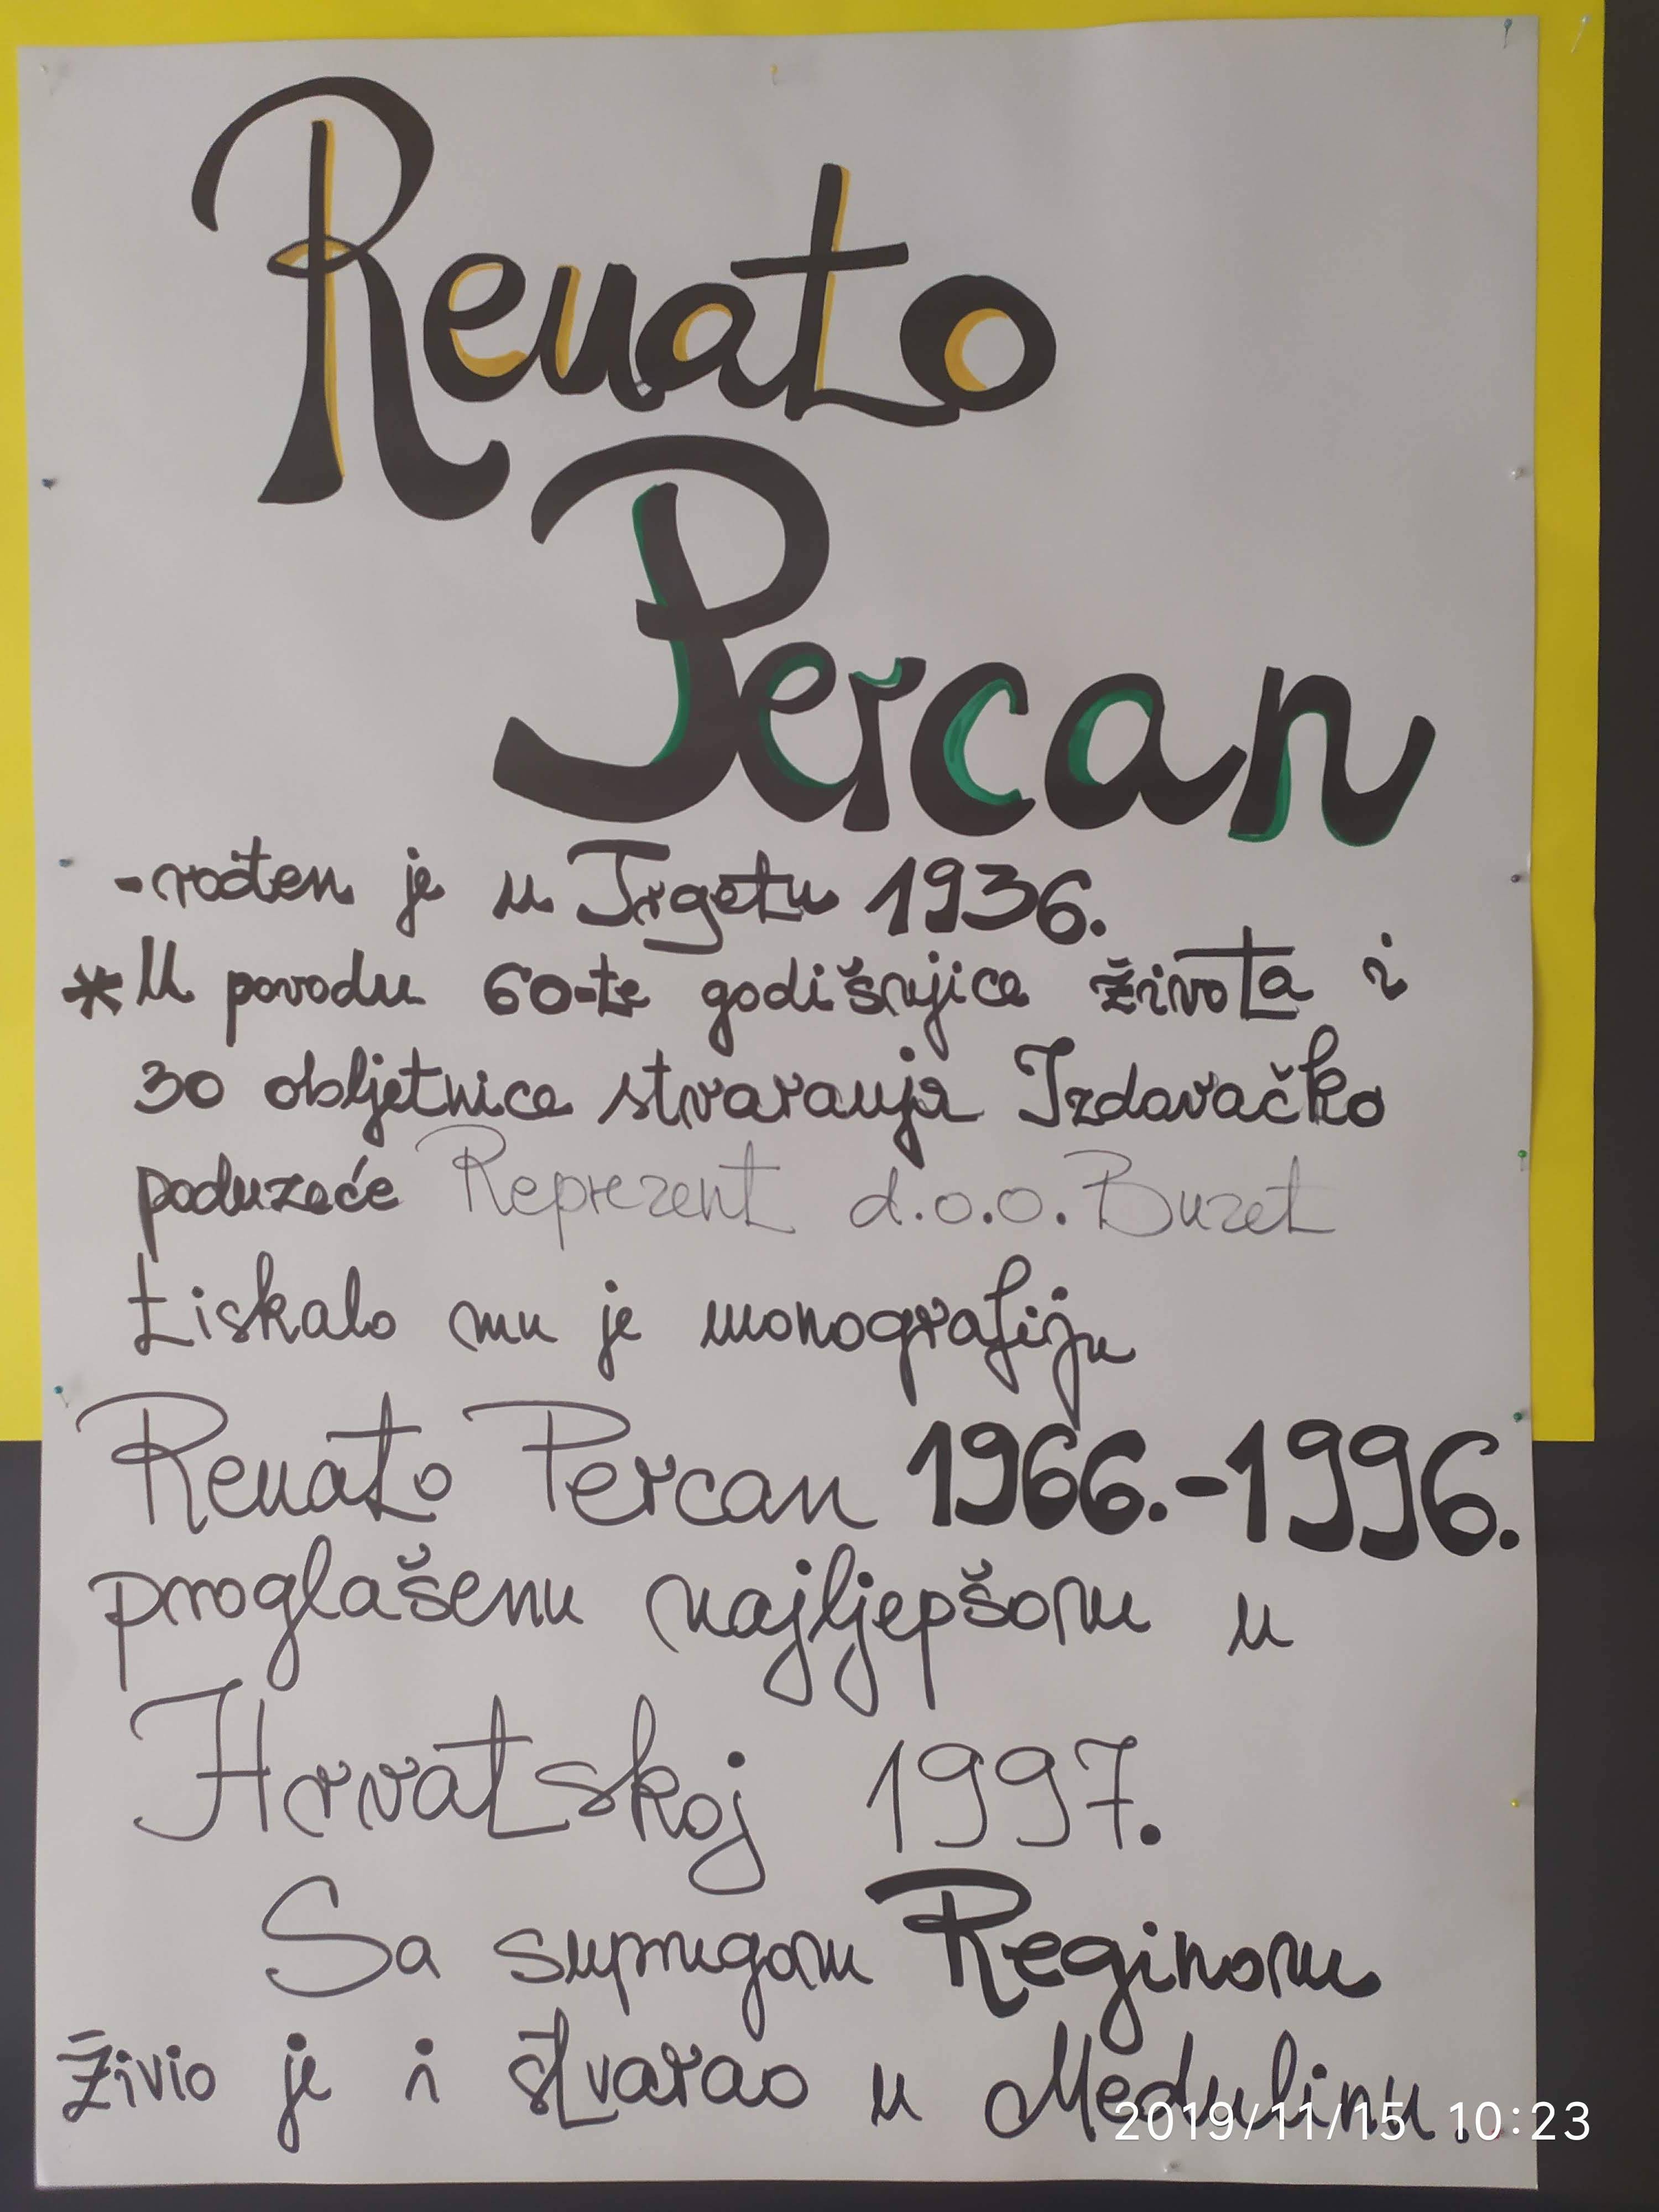 Renato
Percan
-rođen je u Trgetu 1936.
*U povodu 60-te godišnjice života i
30 obljetnice stvaranja Izdavačko
poduzeće Reprezent d.o.o. Buzet
tiskalo mu je monografiju
Renato Percan 1966.-1996.
proglašenu najljepšom u
Hrvatskoj 1997.
Sa suprugom Reginom
živio je i stvarao u Medulinu.
2019/11/15 10:23